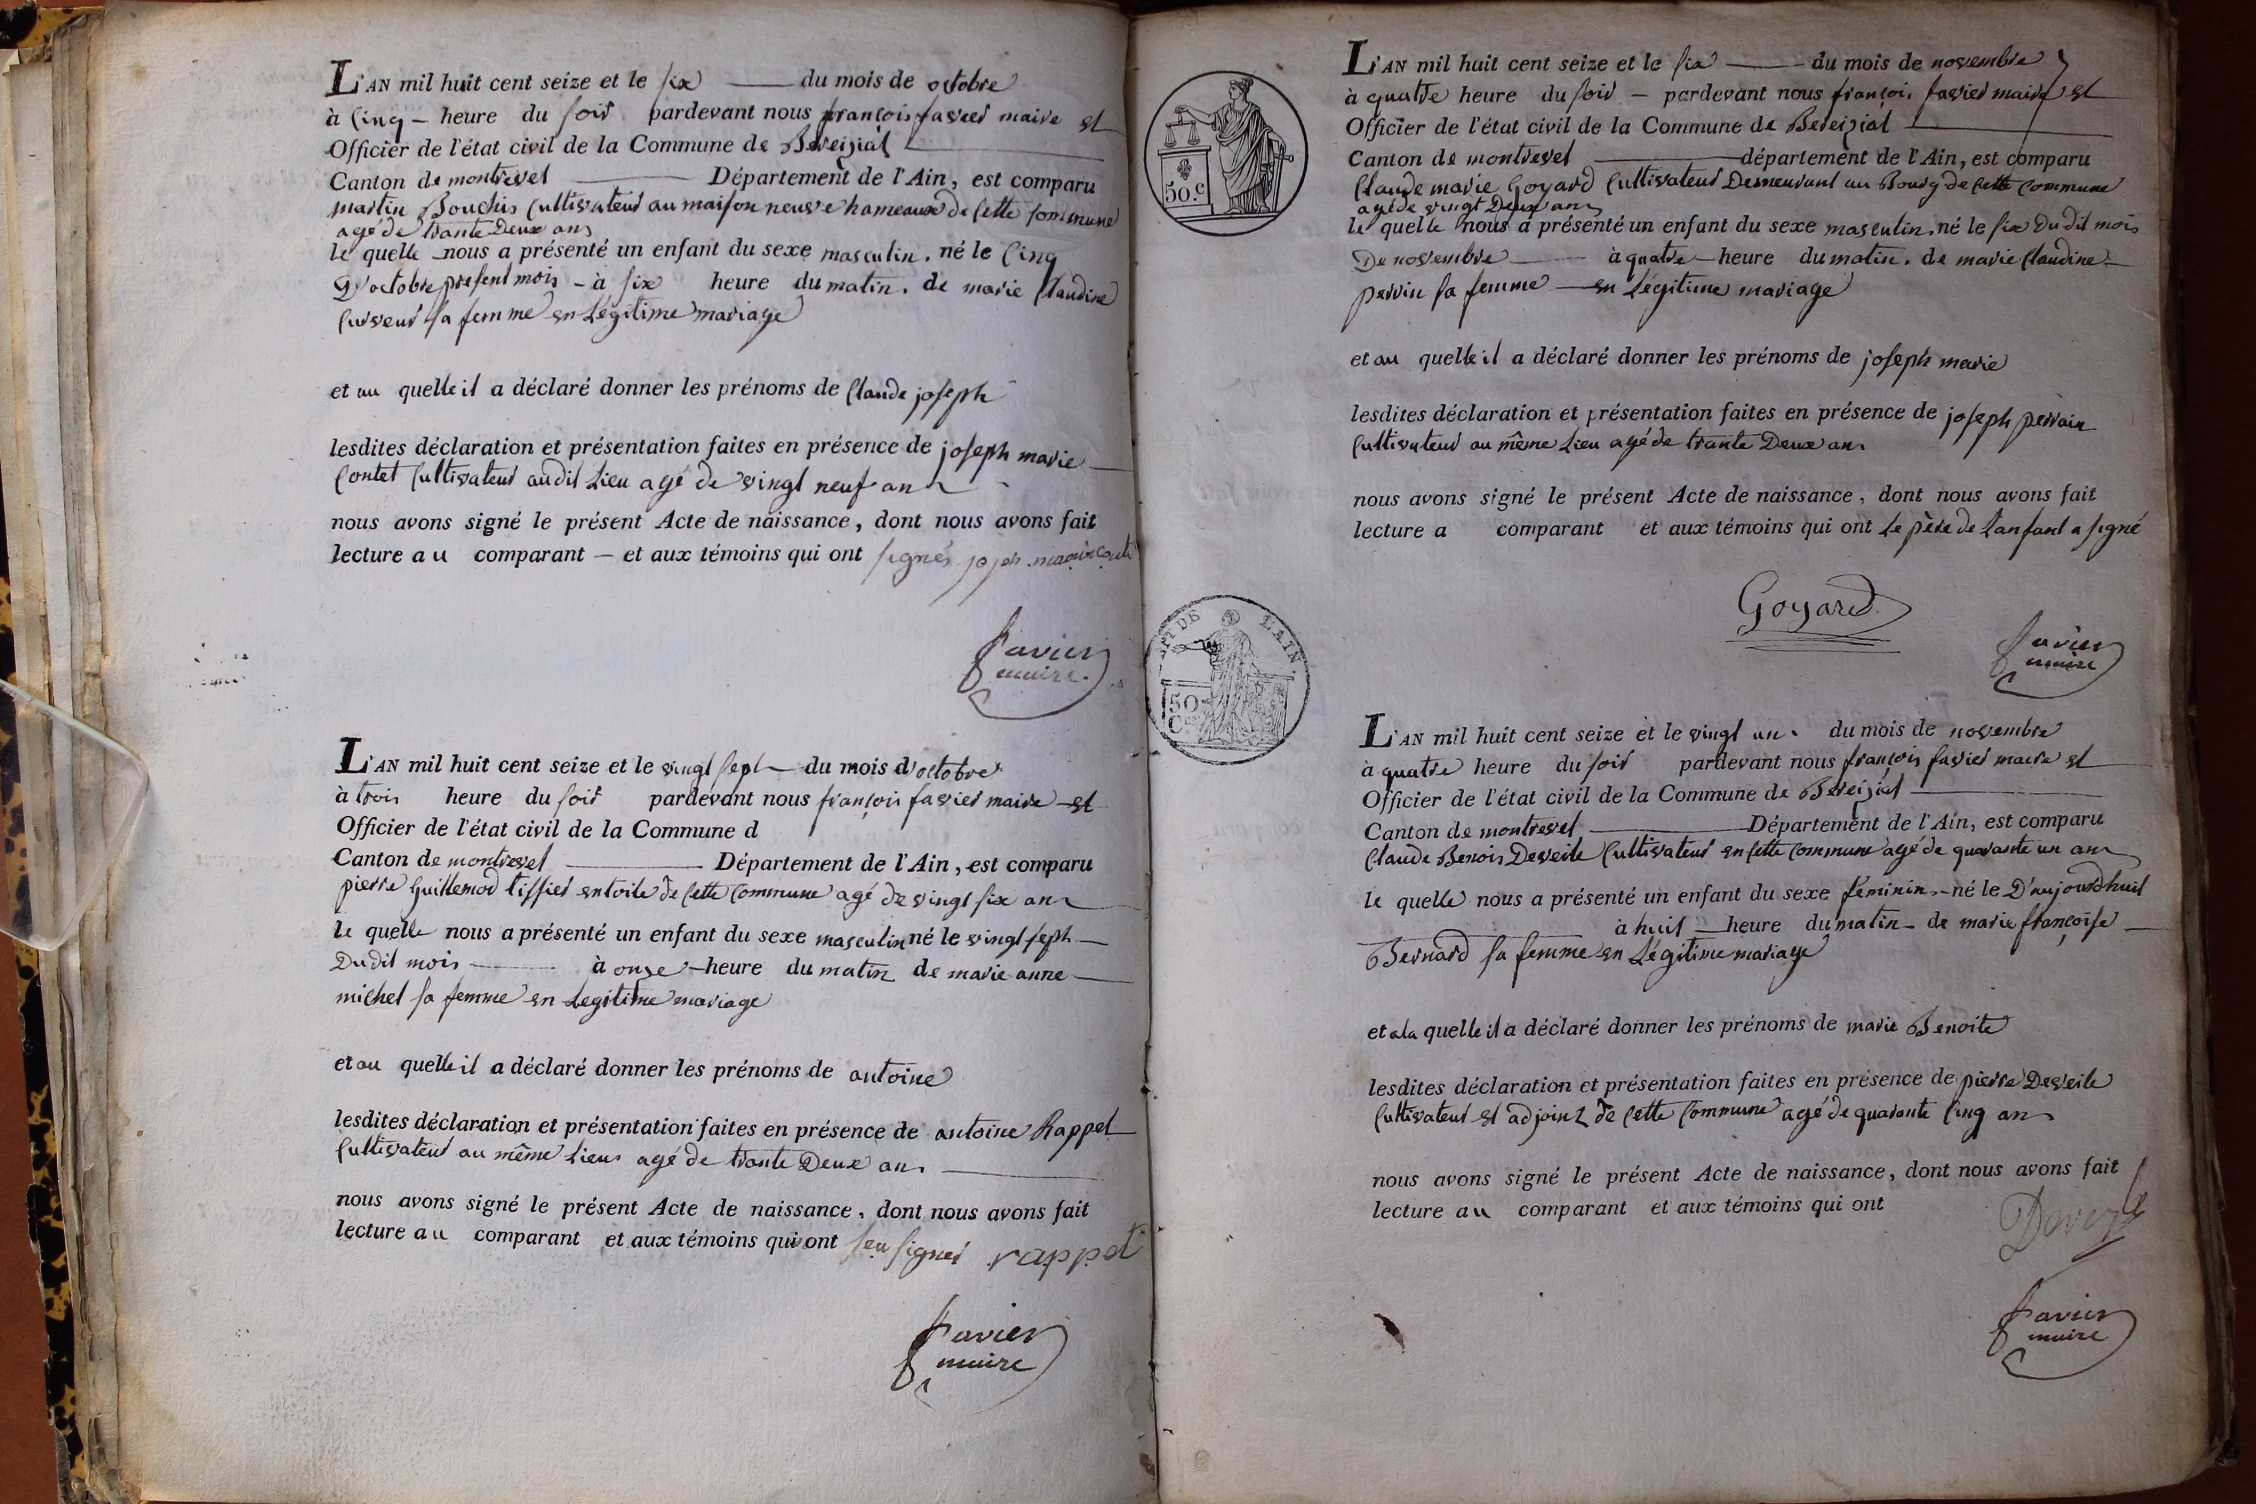 L'AN mil huit cent seize et le six du mois de octobre
à cinq heure du soir pardevant nous françois favier maire et
Officier de l'état civil de la Commune de Bereiziat
Canton de montrevel Département de l'Ain, est comparu
martin Bouchis cultivateur au maison neuve hameaux de cette commune
agé de trante Deux ans
le quelle nous a présenté un enfant du sexe masculin, né le cinq
D'octobre present mois à six heure du matin, de marie claudine
sa femme en légitime mariage
et au quelle il a déclaré donner les prénoms de claude joseph
lesdites déclaration et présentation faites en présence de joseph marie
contet cultivateur audit lieu agé de vingt neuf ans
nous avons signé le présent Acte de naissance, dont nous avons fait
lecture au comparant et aux témoins qui ont signés
favier
maire
L'AN mil huit cent seize et le vingt sept du mois d'octobre
à trois heure du soir pardevant nous françois favier maire et
Officier de l'état civil de la Commune d
Canton de montrevel Département de l'Ain, est comparu
pierre Guillemod tissier en toile de cette commune agé de vingt six ans
le quelle nous a présenté un enfant du sexe masculin né le vingt seph
Dudit mois à onze heure du matin de marie anne
michel sa femme en legitime mariage
et au quelle il a déclaré donner les prénoms de antoine
lesdites déclaration et présentation faites en présence de antoine Rappet
cultivateur au même lieu agé de trante Deux ans
nous avons signé le présent Acte de naissance, dont nous avons fait
lecture au comparant et aux témoins qui ont seu signer rappet
favier
maire
50.c
DE L'AIN
50
C
L'AN mil huit cent seize et le six du mois de novembre
à quatre heure du soir pardevant nous françois favier maire et
Officier de l'état civil de la Commune de Bereiziat
Canton de montrevel département de l'Ain, est comparu
claude marie Goyard cultivateur Demeurant au Bourg de cette commune
agé de vingt Deux ans
le quelle nous a présenté un enfant du sexe masculin, né le six du dit mois
De novembre à quatre heure du matin, de marie claudine
perrin sa femme en légitime mariage
et au quelle il a déclaré donner les prénoms de joseph marie
lesdites déclaration et présentation faites en présence de joseph perrain
cultivateur au même lieu agé de trante Deux ans
nous avons signé le présent Acte de naissance, dont nous avons fait
lecture a comparant et aux témoins qui ont le père de l'anfant a signé
Goyard
favier
maire
L'AN mil huit cent seize et le vingt un du mois de novembre
à quatre heure du soir pardevant nous françois favier maire et
Officier de l'état civil de la Commune de Bereiziat
Canton de montrevel Département de l'Ain, est comparu
claude Benois Deveile cultivateur en cette commune agé de quarante un ans
le quelle nous a présenté un enfant du sexe féminin né le D'aujourdhuit
à huit heure du matin de marie françoise
Bernard sa femme en légitime mariage
et a la quelle il a déclaré donner les prénoms de marie Benoite
lesdites déclaration et présentation faites en présence de pierre Deveile
cultivateur et adjoint de cette commune agé de quarante cinq ans
nous avons signé le présent Acte de naissance, dont nous avons fait
lecture au comparant et aux témoins qui ont
favier
maire